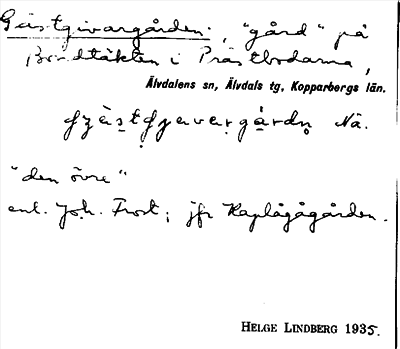 Gästgivargården: "gård" på
Bondtäkten i Prästbodarna,
Älvdalens sn, Älvdals tg, Kopparbergs län.
Nä.
"den övre"
enl. Joh. Frost; jfr Kaplågågården.
HELGE LINDBERG 1935.